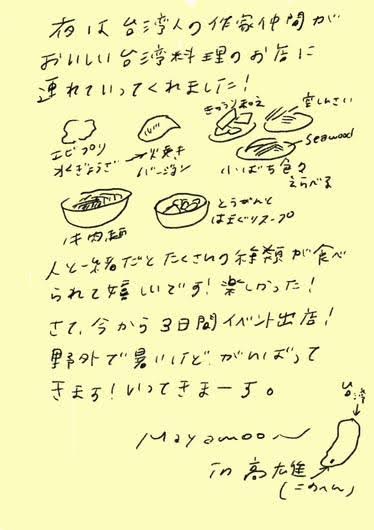 夜は台湾人の作家仲間が
おいしい台湾料理のお店に
連れていってくれました！
エビプリ
水ぎょうざ
→火焼き
バージョン
きゅうり和え
空しんさい
seawood
小ばち色々
えらべる
牛肉麺
とうがんと
はまぐりスープ
人と一緒だとたくさんの種類が食べ
られて嬉しいです！楽しかった！
さて、今から3日間イベント出店！
野外で暑いけど、がんばって
きます！いってきまーす。
Mayamoon
in 高雄
(このへん)
台湾